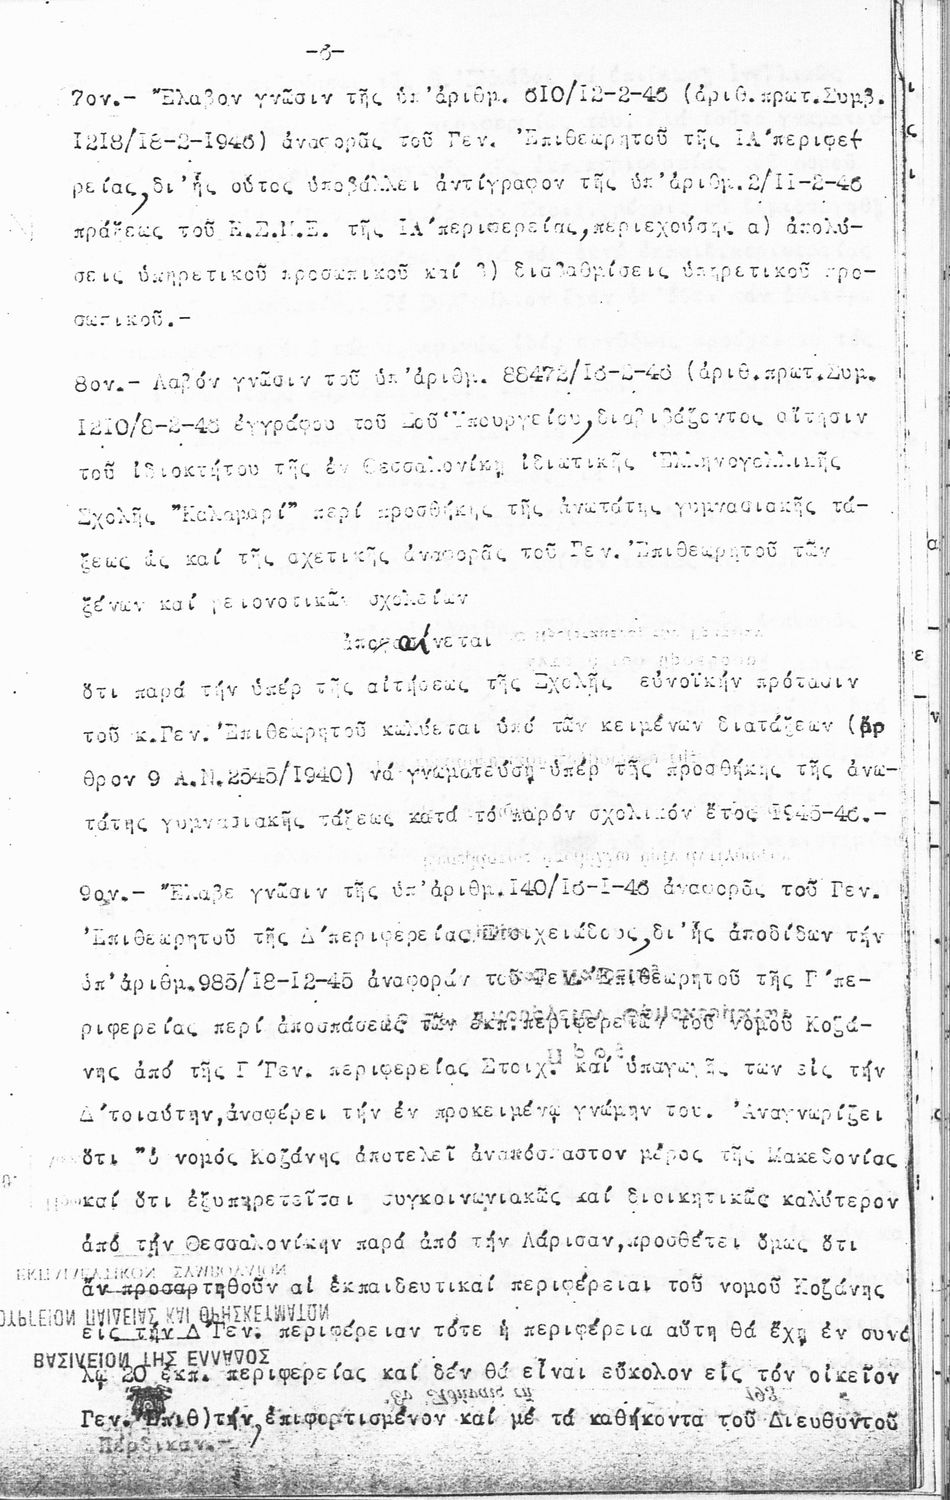 -6-
7ον.- Ἔλαβον γνῶσιν τῆς ὑπ'ἀριθμ. 610/12-2-46 (ἀριθ.πρωτ.Συμβ.
1218/18-2-1946) ἀναφορᾶς τοῦ Γεν. Ἐπιθεωρητοῦ τῆς ΙΑ΄περιφε-
ρείας, δι'ἧς οὗτος ὑποβάλλει ἀντίγραφον τῆς ὑπ'ἀριθμ.2/11-2-46
πράξεως τοῦ Ε.Σ.Μ.Ε. τῆς ΙΑ΄περιφερείας, περιεχούσης α) ἀπολύ-
σεις ὑπηρετικοῦ προσωπικοῦ καί β) διαβαθμίσεις ὑπηρετικοῦ προ-
σωπικοῦ.-
8ον.- Λαβόν γνῶσιν τοῦ ὑπ'ἀριθμ. 88472/16-2-46 (ἀριθ.πρωτ.Συμ.
1210/8-2-46 ἐγγράφου τοῦ Σοῦ Ὑπουργείου, διαβιβάζοντος αἴτησιν
τοῦ ἰδιοκτήτου τῆς ἐν Θεσσαλονίκῃ ἰδιωτικῆς Ἑλληνογαλλικῆς
Σχολῆς "Καλαμαρί" περί προσθήκης τῆς ἀνωτάτης γυμνασιακῆς τά-
ξεως ὡς καί τῆς σχετικῆς ἀναφορᾶς τοῦ Γεν. Ἐπιθεωρητοῦ τῶν
ξένων καί μειονοτικῶν σχολείων
ἀποφαίνεται
ὅτι παρά τήν ὑπέρ τῆς αἰτήσεως τῆς Σχολῆς εὐνοϊκήν πρότασιν
τοῦ κ.Γεν. Ἐπιθεωρητοῦ κωλύεται ὑπό τῶν κειμένων διατάξεων (ἄρ
θρον 9 Α.Ν.2545/1940) νά γνωματεύσῃ ὑπέρ τῆς προσθήκης τῆς ἀνω-
τάτης γυμνασιακῆς τάξεως κατά τό παρόν σχολικόν ἔτος 1945-46.-
9ον.- Ἔλαβε γνῶσιν τῆς ὑπ'ἀριθμ.140/16-1-46 ἀναφορᾶς τοῦ Γεν.
Ἐπιθεωρητοῦ τῆς Δ΄περιφερείας Στοιχειώδους, δι'ἧς ἀποδίδων τήν
ὑπ'ἀριθμ.985/18-12-45 ἀναφοράν τοῦ Γεν. Ἐπιθεωρητοῦ τῆς Γ΄πε-
ριφερείας περί ἀποσπάσεως τῶν ἐκπ. περιφερειῶν τοῦ νομοῦ Κοζά-
νης ἀπό τῆς Γ΄Γεν. περιφερείας Στοιχ. καί ὑπαγωγῆς των εἰς τήν
Δ΄τοιαύτην, ἀναφέρει τήν ἐν προκειμένῳ γνώμην του. Ἀναγνωρίζει
ὅτι "ὁ νομός Κοζάνης ἀποτελεῖ ἀναπόσπαστον μέρος τῆς Μακεδονίας
καί ὅτι ἐξυπηρετεῖται συγκοινωνιακῶς καί διοικητικῶς καλύτερον
ἀπό τήν Θεσσαλονίκην παρά ἀπό τήν Λάρισαν, προσθέτει ὅμως ὅτι
ἄν προσαρτηθοῦν αἱ ἐκπαιδευτικαί περιφέρειαι τοῦ νομοῦ Κοζάνης
εἰς τήν Δ΄Γεν. περιφέρειαν τότε ἡ περιφέρεια αὕτη θά ἔχῃ ἐν συνό
λῳ 20 ἐκπ. περιφερείας καί δέν θά εἶναι εὔκολον εἰς τόν οἰκεῖον
Γεν. Ἐπιθ)τήν, ἐπιφορτισμένον καί μέ τά καθήκοντα τοῦ Διευθυντοῦ